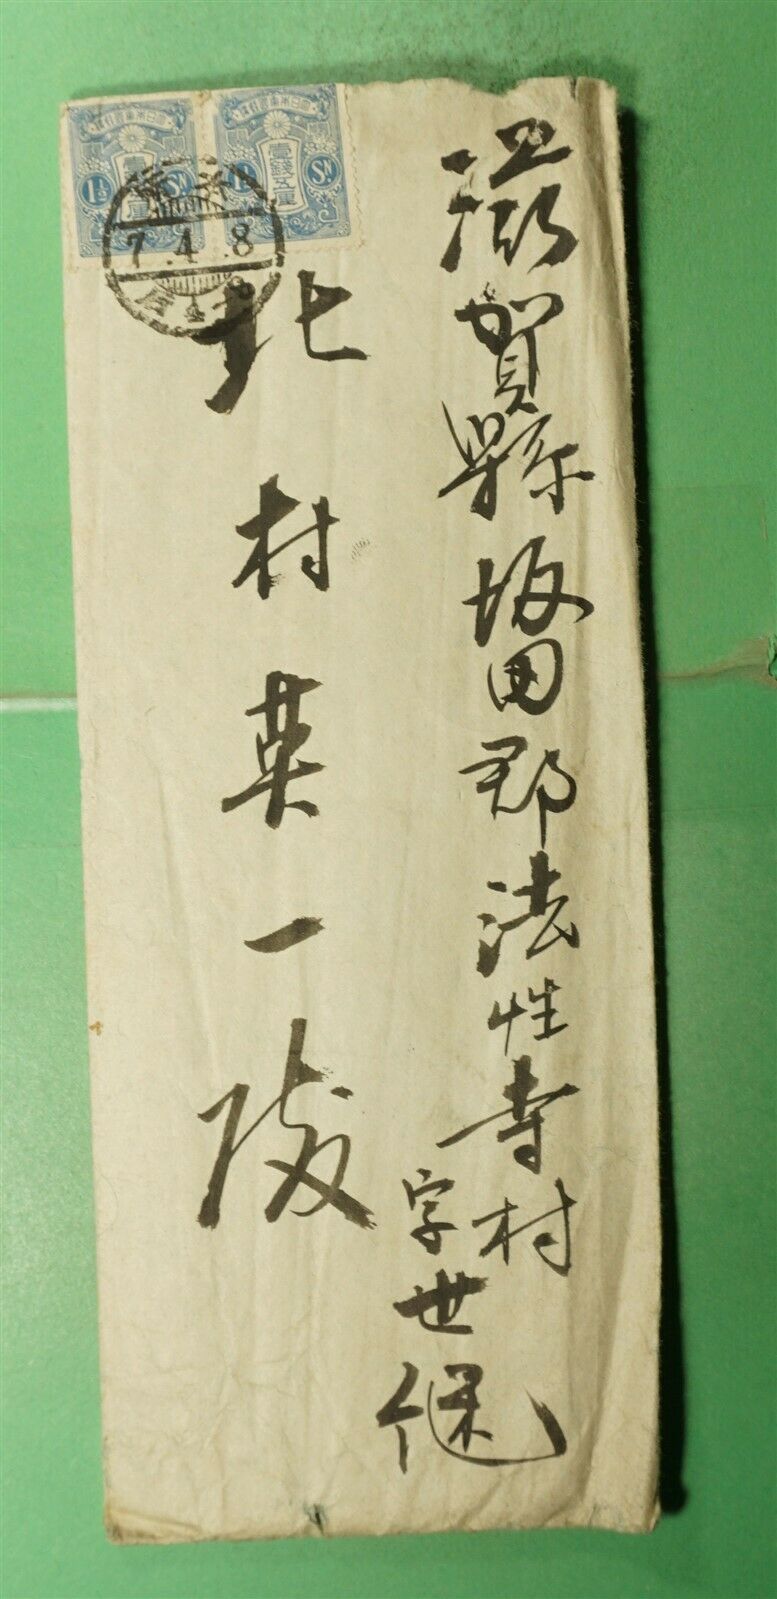 滋賀縣坂田郡法性寺村
字世継
北村英一殿
大日本帝國郵便
壹錢五厘
1½ Sn
大日本帝國郵便
壹錢五厘
1½ Sn
7.4.8